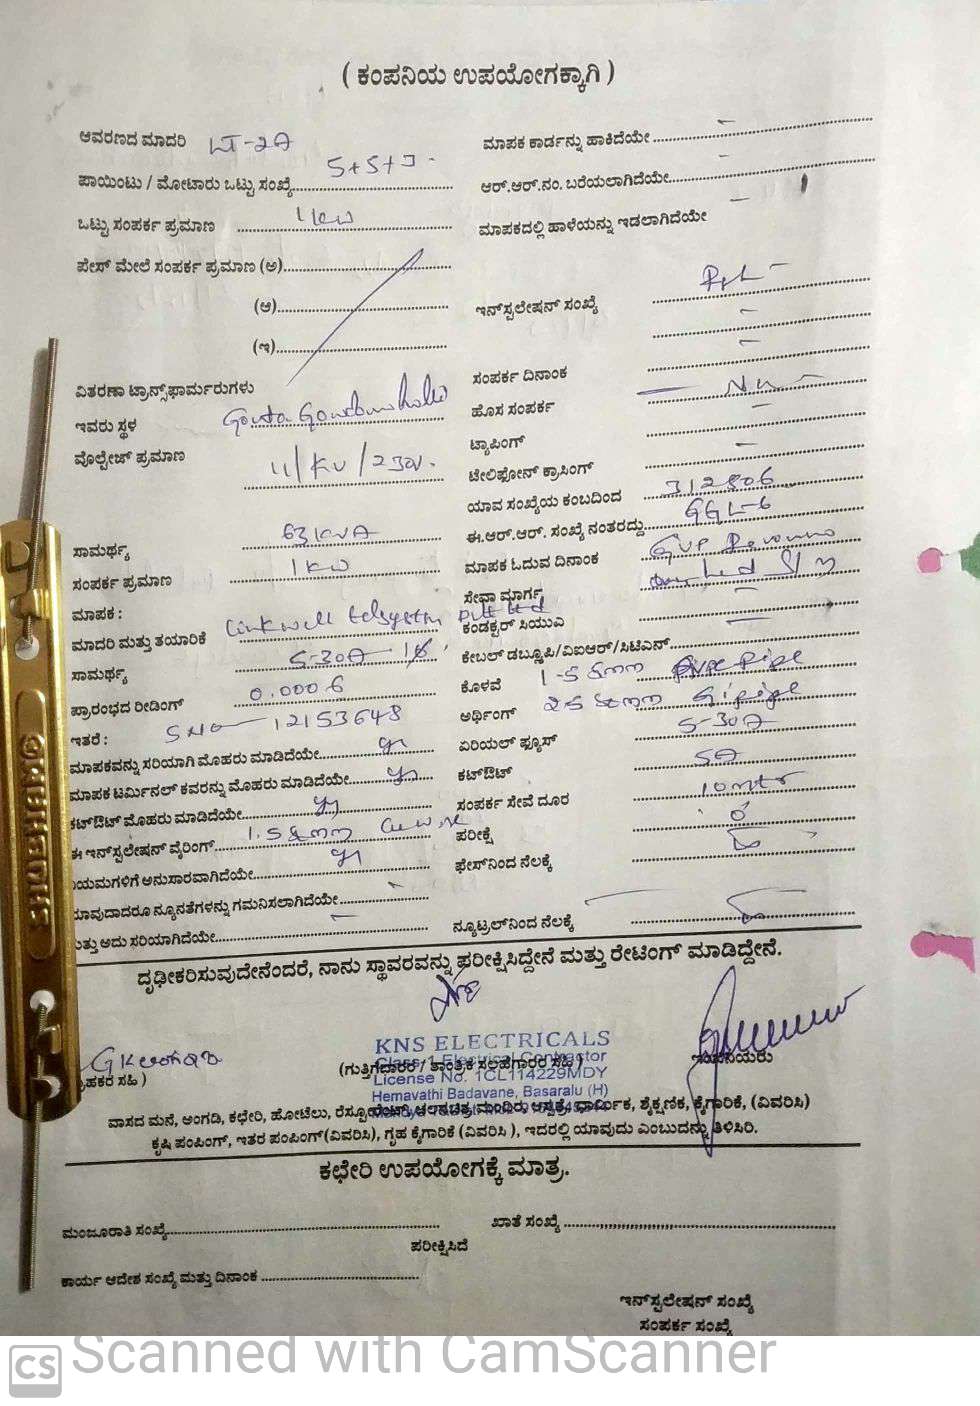 ( ಕಂಪನಿಯ ಉಪಯೋಗಕ್ಕಾಗಿ )
ಆವರಣದ ಮಾದರಿ LT-2A
ಪಾಯಿಂಟು / ಮೋಟಾರು ಒಟ್ಟು ಸಂಖ್ಯೆ 5+5+
ಒಟ್ಟು ಸಂಪರ್ಕ ಪ್ರಮಾಣ 1KW
ಪೇಸ್ ಮೇಲೆ ಸಂಪರ್ಕ ಪ್ರಮಾಣ (ಅ)
(ಆ)
(ಇ)
ವಿತರಣಾ ಟ್ರಾನ್ಸ್‌ಫಾರ್ಮರುಗಳು
ಇವರು ಸ್ಥಳ
ವೊಲ್ಟೇಜ್ ಪ್ರಮಾಣ 11/KV/230V.
ಸಾಮರ್ಥ್ಯ 63KVA
ಸಂಪರ್ಕ ಪ್ರಮಾಣ 1KW
ಮಾಪಕ :
ಮಾದರಿ ಮತ್ತು ತಯಾರಿಕೆ Linkwell telesystem Pvt Ltd
ಸಾಮರ್ಥ್ಯ 5-30A
ಪ್ರಾರಂಭದ ರೀಡಿಂಗ್ 0.0006
ಇತರೆ : SNO - 12153648
ಮಾಪಕವನ್ನು ಸರಿಯಾಗಿ ಮೊಹರು ಮಾಡಿದೆಯೇ
ಮಾಪಕ ಟರ್ಮಿನಲ್ ಕವರನ್ನು ಮೊಹರು ಮಾಡಿದೆಯೇ
ಕಟ್‌ಔಟ್ ಮೊಹರು ಮಾಡಿದೆಯೇ
ಈ ಇನ್‌ಸ್ಟಲೇಷನ್ ವೈರಿಂಗ್ 1.5
ಯಮಗಳಿಗೆ ಅನುಸಾರವಾಗಿದೆಯೇ
ಯಾವುದಾದರೂ ನ್ಯೂನತೆಗಳನ್ನು ಗಮನಿಸಲಾಗಿದೆಯೇ
ಮತ್ತು ಅದು ಸರಿಯಾಗಿದೆಯೇ
ಮಾಪಕ ಕಾರ್ಡನ್ನು ಹಾಕಿದೆಯೇ
ಆರ್.ಆರ್.ನಂ. ಬರೆಯಲಾಗಿದೆಯೇ
ಮಾಪಕದಲ್ಲಿ ಹಾಳೆಯನ್ನು ಇಡಲಾಗಿದೆಯೇ
ಇನ್‌ಸ್ಟಲೇಷನ್ ಸಂಖ್ಯೆ
ಸಂಪರ್ಕ ದಿನಾಂಕ
ಹೊಸ ಸಂಪರ್ಕ
ಟ್ಯಾಪಿಂಗ್
ಟೇಲಿಫೋನ್ ಕ್ರಾಸಿಂಗ್
ಯಾವ ಸಂಖ್ಯೆಯ ಕಂಬದಿಂದ 312806
ಈ.ಆರ್.ಆರ್. ಸಂಖ್ಯೆ ನಂತರದ್ದು GGL-6
ಮಾಪಕ ಓದುವ ದಿನಾಂಕ
ಸೇವಾ ಮಾರ್ಗ
ಕಂಡಕ್ಟರ್ ಸಿಯುವಿ
ಕೇಬಲ್ ಡಬ್ಲ್ಯೂಪಿ/ವಿಐಆರ್/ಸಿಟಿಎನ್
ಕೊಳವೆ PVC Pipe
ಅರ್ಥಿಂಗ್ Gi pipe
ಏರಿಯಲ್ ಫ್ಯೂಸ್ 5-30A
ಕಟ್‌ಔಟ್ 5A
ಸಂಪರ್ಕ ಸೇವೆ ದೂರ 10mtr
ಪರೀಕ್ಷೆ
ಫೇಸ್‌ನಿಂದ ನೆಲಕ್ಕೆ
ನ್ಯೂಟ್ರಲ್‌ನಿಂದ ನೆಲಕ್ಕೆ
ದೃಢೀಕರಿಸುವುದೇನೆಂದರೆ, ನಾನು ಸ್ಥಾವರವನ್ನು ಪರೀಕ್ಷಿಸಿದ್ದೇನೆ ಮತ್ತು ರೇಟಿಂಗ್ ಮಾಡಿದ್ದೇನೆ.
KNS ELECTRICALS
Class-1 Electrical Contractor
License No. 1CL114229MDY
Hemavathi Badavane, Basaralu (H)
ಗ್ರಾಹಕರ ಸಹಿ )
(ಗುತ್ತಿಗೆದಾರರ / ತಾಂತ್ರಿಕ ಸಲಹೆಗಾರರ ಸಹಿ )
ವಾಸದ ಮನೆ, ಅಂಗಡಿ, ಕಛೇರಿ, ಹೋಟೆಲು, ರೆಸ್ಟೋರೆಂಟ್, ಚಲನಚಿತ್ರ ಮಂದಿರ, ಆಸ್ಪತ್ರೆ, ಧಾರ್ಮಿಕ, ಶೈಕ್ಷಣಿಕ, ಕೈಗಾರಿಕೆ, (ವಿವರಿಸಿ)
ಕೃಷಿ ಪಂಪಿಂಗ್, ಇತರ ಪಂಪಿಂಗ್(ವಿವರಿಸಿ), ಗೃಹ ಕೈಗಾರಿಕೆ (ವಿವರಿಸಿ ), ಇದರಲ್ಲಿ ಯಾವುದು ಎಂಬುದನ್ನು ತಿಳಿಸಿರಿ.
ಕಛೇರಿ ಉಪಯೋಗಕ್ಕೆ ಮಾತ್ರ.
ಮಂಜೂರಾತಿ ಸಂಖ್ಯೆ ಖಾತೆ ಸಂಖ್ಯೆ
ಪರೀಕ್ಷಿಸಿದೆ
ಕಾರ್ಯ ಆದೇಶ ಸಂಖ್ಯೆ ಮತ್ತು ದಿನಾಂಕ
ಇನ್‌ಸ್ಟಲೇಷನ್ ಸಂಖ್ಯೆ
ಸಂಪರ್ಕ ಸಂಖ್ಯೆ
CS Scanned with CamScanner